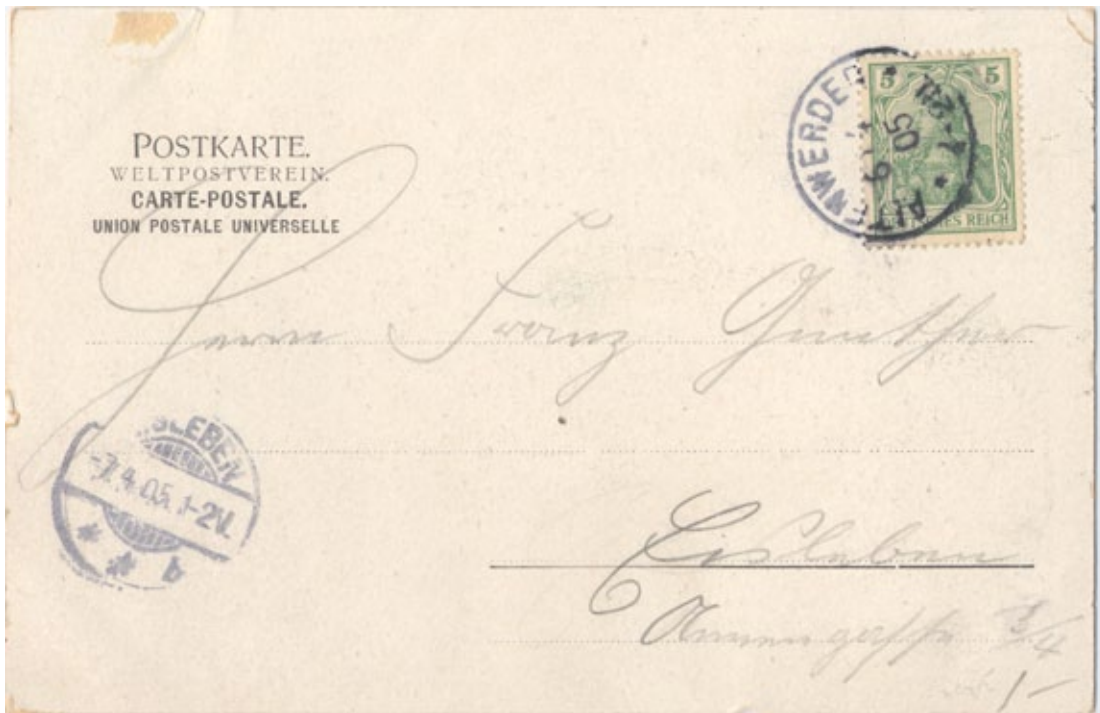 POSTKARTE.
WELTPOSTVEREIN.
CARTE-POSTALE.
UNION POSTALE UNIVERSELLE
5 5
ALTENWERDER
05
REICH
Herrn Franz Günther
SLEBEN
-7.4.05.1-2V.
* * b
Eisleben
Annengasse